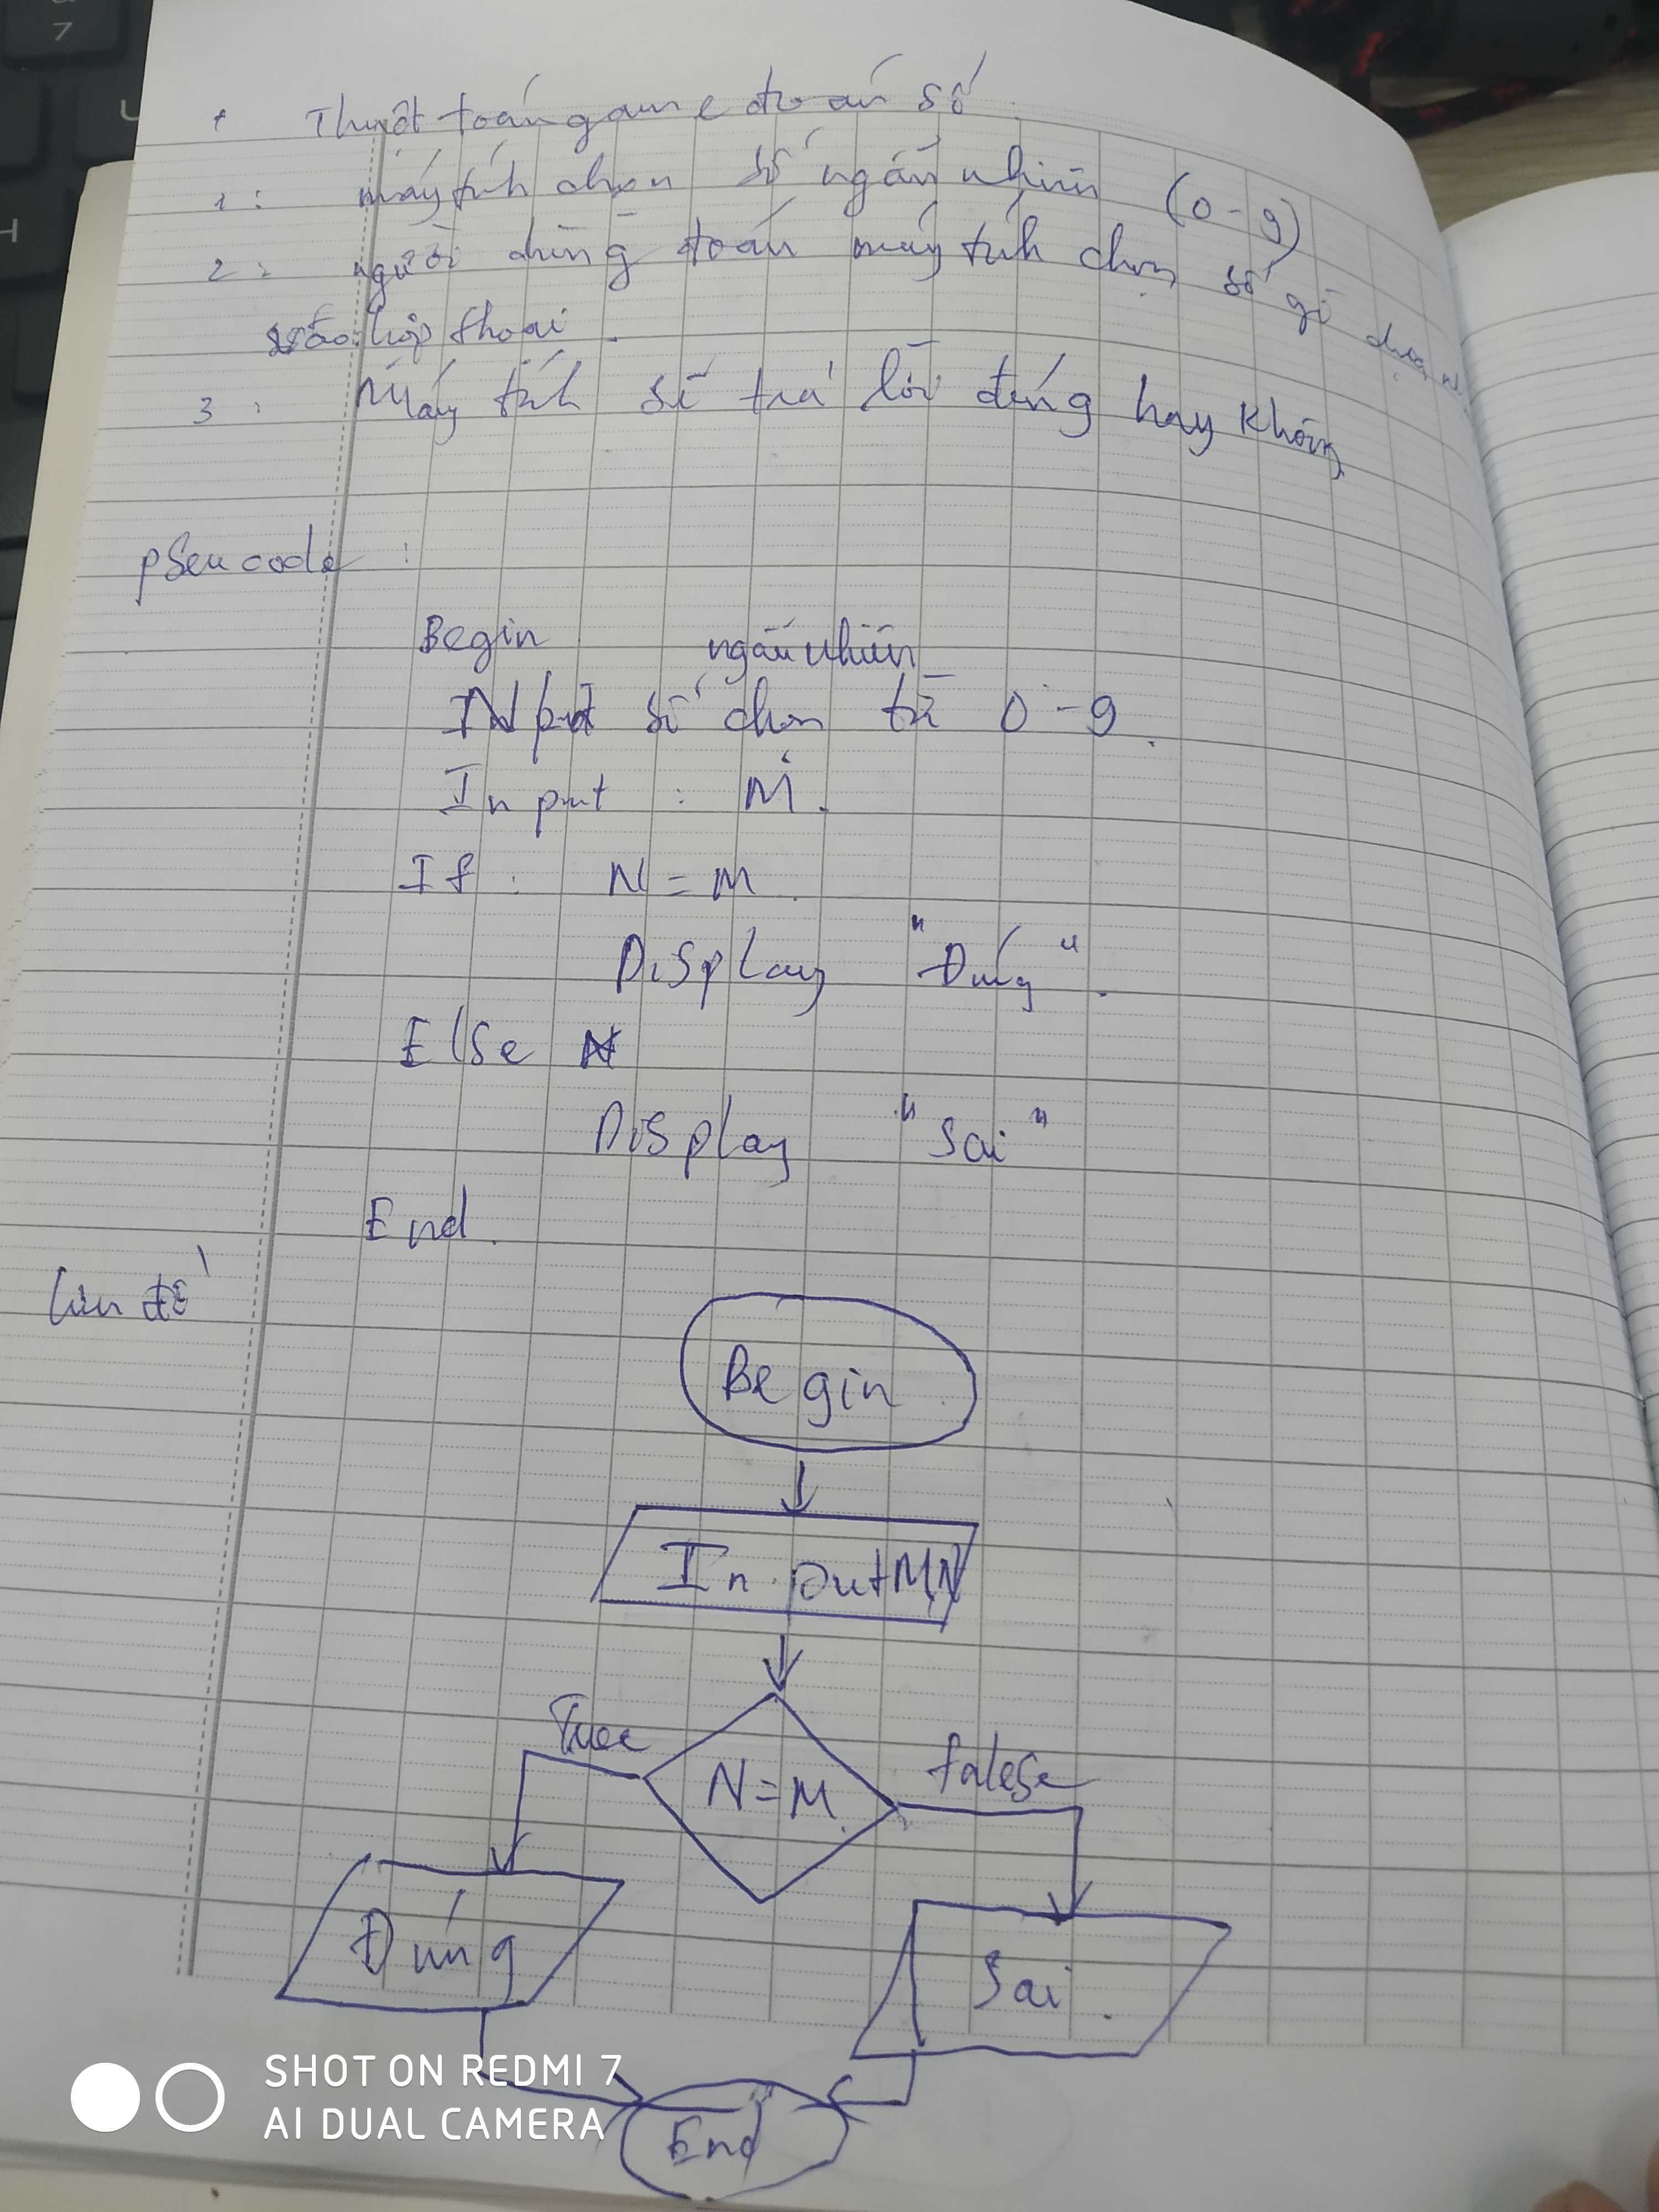 * Thuật toán game đoán số
1: máy tính chọn số ngẫu nhiên (0-9)
2: người dùng đoán máy tính chọn số gì
vào hộp thoại.
3: Máy tính sẽ trả lời đúng hay không
pSeu code :
Begin
ngẫu nhiên
INput số chọn từ 0-9.
Input : M.
If : N = M.
Display "Đúng".
Else
Display "Sai"
End.
lưu đồ
Begin
In putM,N
True
N=M.
falese
Đúng
Sai.
End
SHOT ON REDMI 7
AI DUAL CAMERA
7
U
H